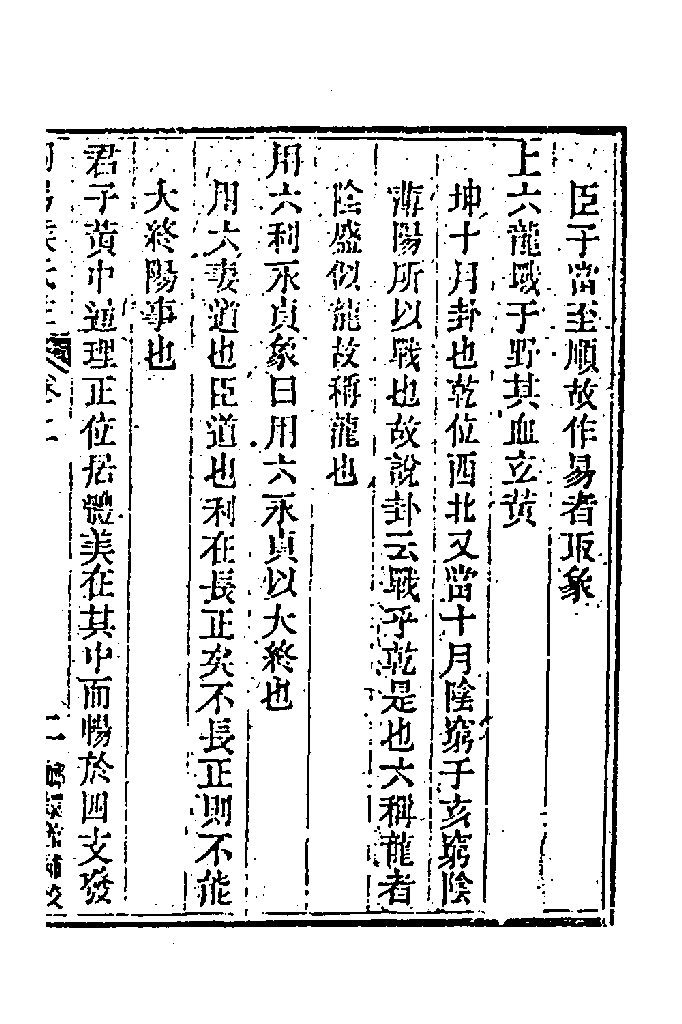 臣子當至順故作易者取象
上六龍戰于野其血玄黃
坤十月卦也乾位西北又當十月陰窮于亥窮陰
薄陽所以戰也故說卦云戰乎乾是也六稱龍者
陰盛似龍故稱龍也
用六利永貞象曰用六永貞以大終也
用六妻道也臣道也利在長正矣不長正則不能
大終陽事也
君子黃中通理正位居體美在其中而暢於四支發
二